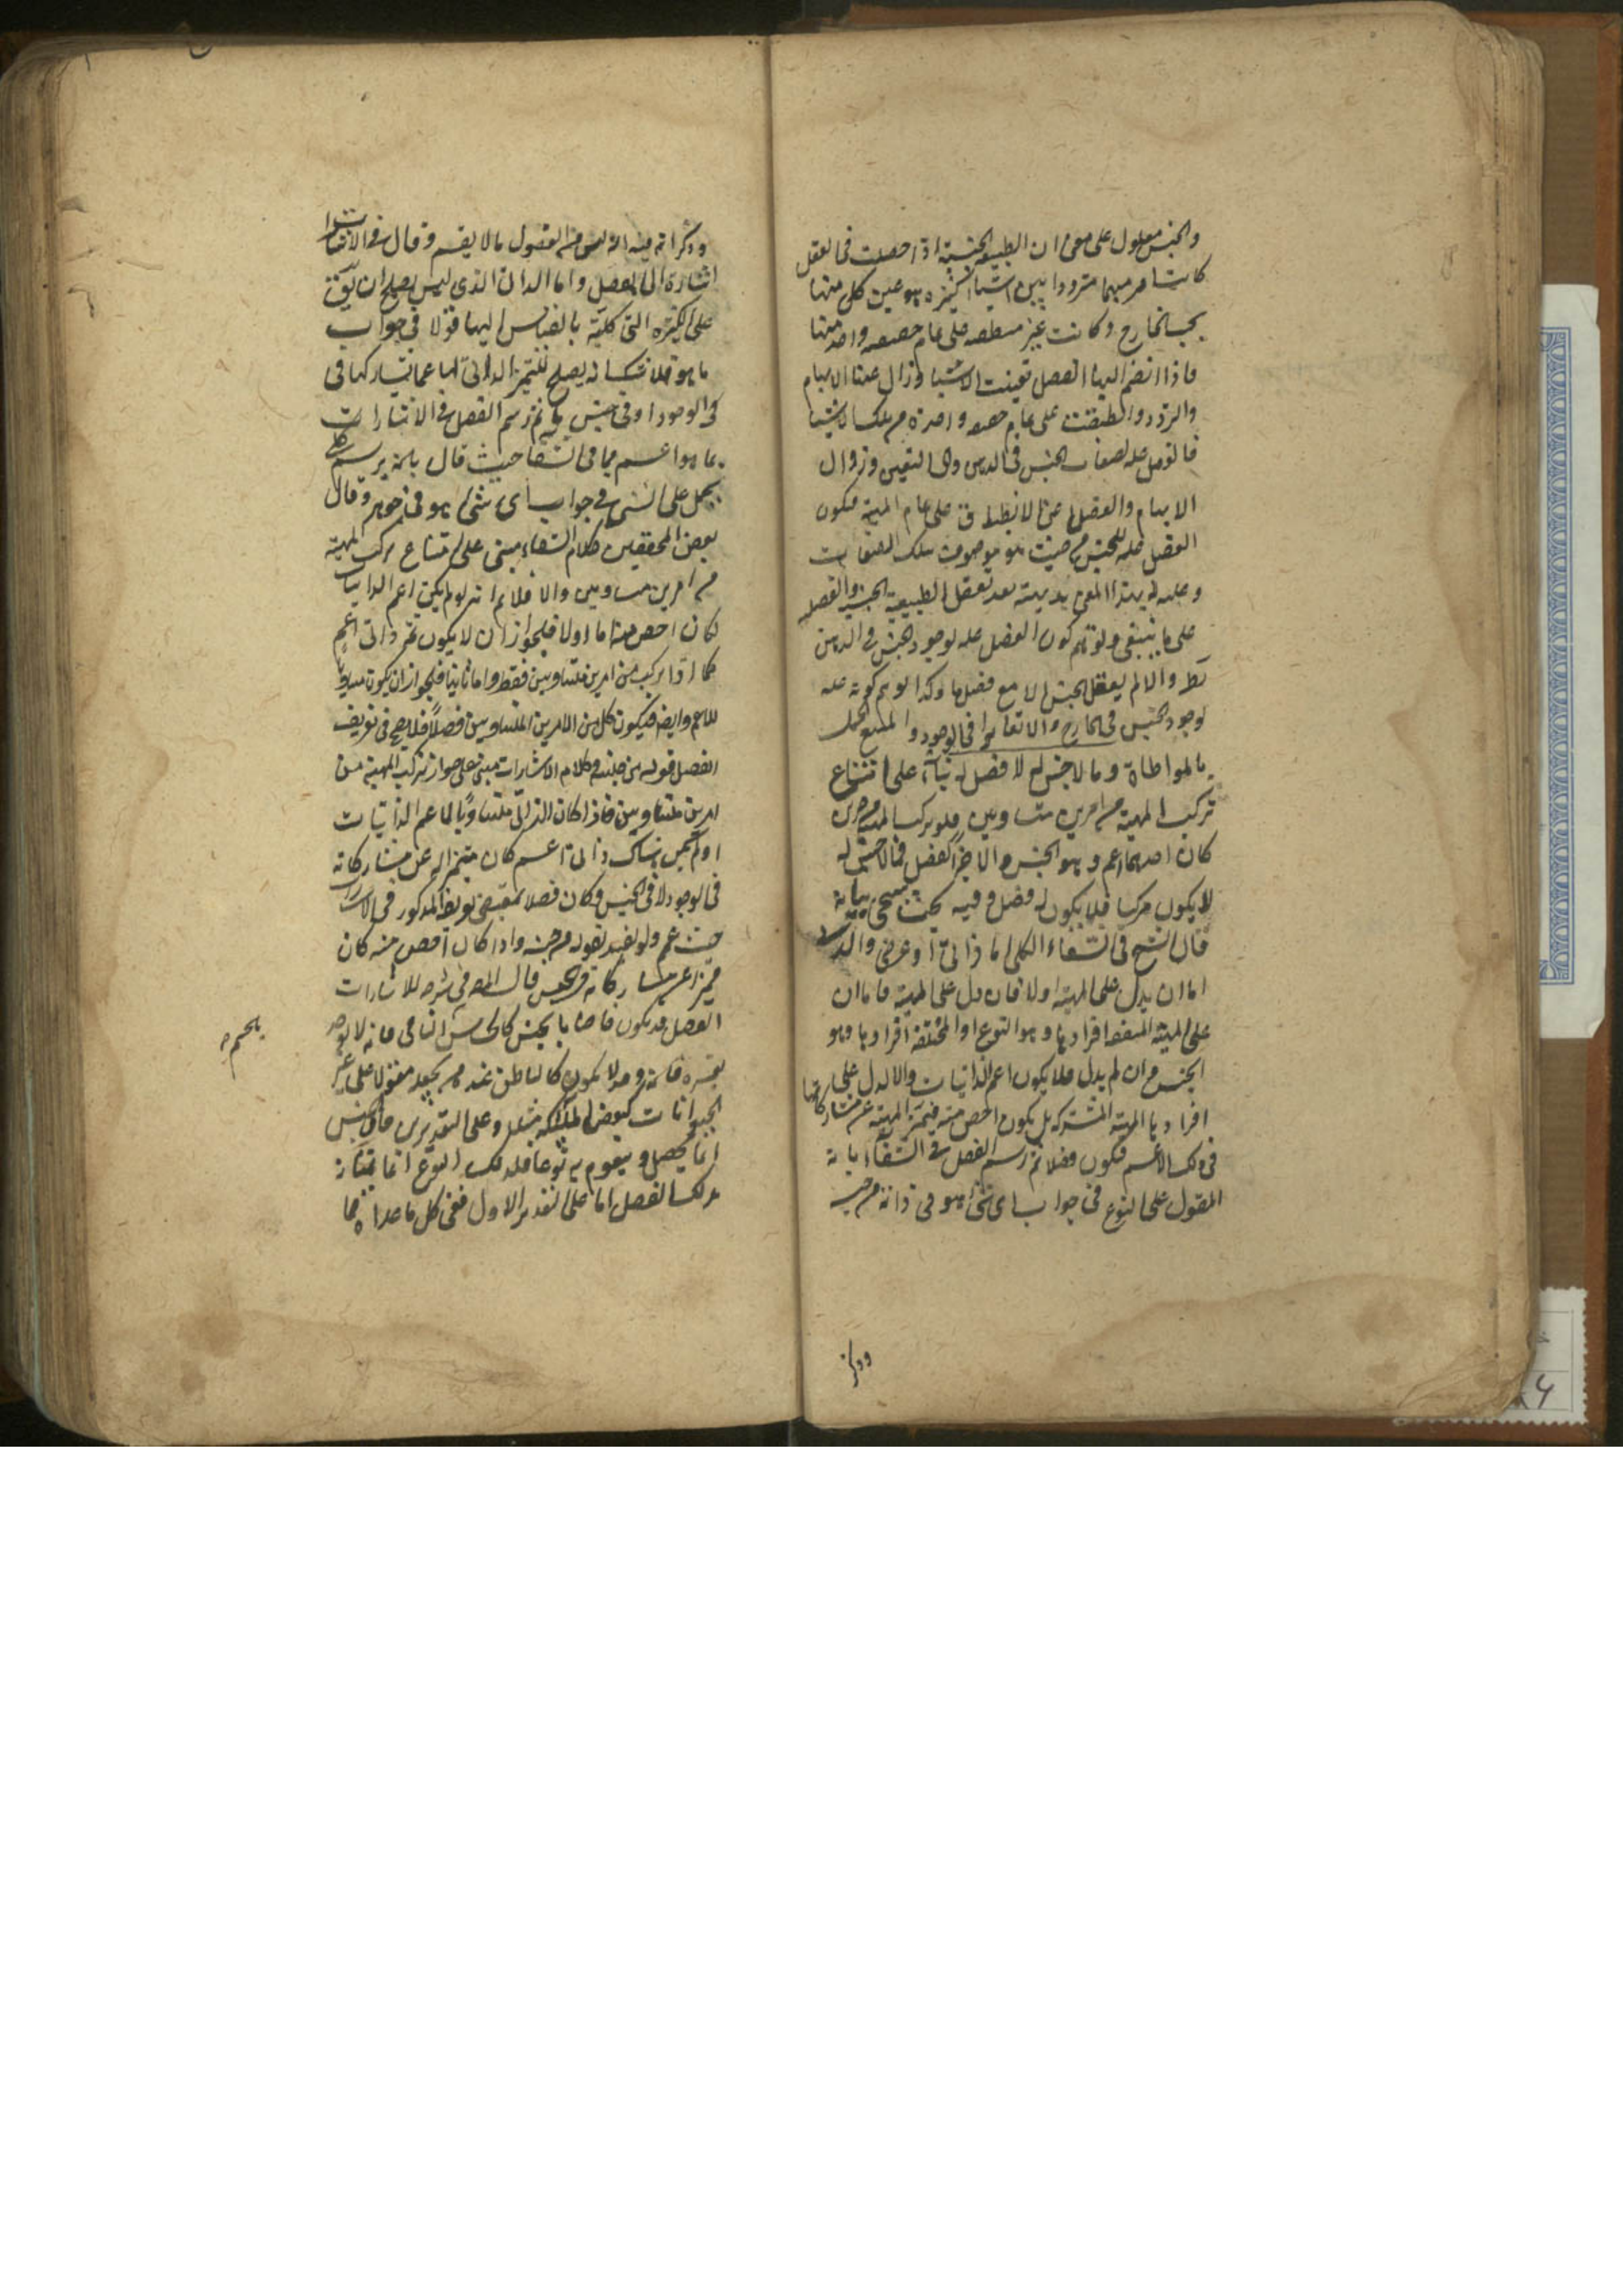 والجنس معلول على معنى ان الطبيعة الجنسية اذا حصلت فى العقل
كانت امرا مبهما مترددا بين اشياء كثيرة هو عين كل منها
بحسب الخارج وكانت غير منطبقة على تمام حقيقة واحد منها
فاذا انضم اليها الفصل تعينت الاشياء وزال عنها الابهام
والتردد وانطبقت على تمام حقيقة واحدة من تلك الاشياء
فالفصل علة لصفات الجنس فى الذهن وهى التعين وزوال
الابهام والتحصل اعنى الانطباق على تمام المهية فيكون
الفصل علة للجنس من حيث هو موصوف بتلك الصفات
وعليته بهذا المعنى بديهية بعد تعقل الطبيعة الجنسية والفصلية
على ما ينبغى وتوهم كون الفصل علة لوجود الجنس فى الذهن
بط والا لم يعقل الجنس الا مع فصل ما وكذا توهم كونه علة
لوجود الجنس فى الخارج والا تغايرا فى الوجود وامتنع الحمل
بالمواطاة وما لا جنس له لا فصل له بناء على امتناع
تركب المهية من امرين متساويين فلو تركب المهية من امرين
كان احدهما اعم وهو الجنس والاخر الفصل فما لا جنس له
لا يكون مركبا فلا يكون له فصل وفيه بحث سيجئ بيانه
قال الشيخ فى الشفاء الكلى اما ذاتى او عرضى والذاتى
اما ان يدل على المهية اولا فان دل على المهية فاما ان
على المهية المتفقة افرادها وهو النوع او المختلفة افرادها وهو
الجنس وان لم يدل فلا يكون اعم الذاتيات والا لدل على
افرادها المهية المشتركة بل يكون اخص منه فيميز المهية عن مشاركاتها
فى ذلك الاعم فيكون فصلا ثم رسم الفصل فى الشفاء بانه
المقول على النوع فى جواب اى شئ هو فى ذاته من جنسه
وذكر انه
وذكر انه فيه انه ليس من الفصول ما لا يقسم وقال فى الاشارات
اشارة الى الفصل واما الذاتى الذى ليس يصلح ان يق
على الكثرة التى كليته بالقياس اليها قولا فى جواب
ما هو فلا شك انه يصلح للتميز الذاتى لها عما يشاركها فى
فى الوجود او فى جنس ما ثم رسم الفصل فى الاشارات
بما هو اعم مما فى الشفا حيث قال بانه يرسم بكلى
يحمل على الشئ فى جواب اى شئ هو فى جوهره وقال
بعض المحققين كلام الشفاء مبنى على امتناع تركب المهية
من امرين متساويين والا فلا نم انه لو لم يكن اعم الذاتيات
لكان اخص منها اما اولا فلجواز ان لا يكون ثم ذاتى اعم
كما اذا تركب من امرين متساويين فقط واما ثانيا فلجواز ان يكون مساويا
للاعم وايضا فيكون كل من الامرين المتساويين فصلا فلا يصح فى تعريف
الفصل قوله من جنسه وكلام الاشارات مبنى على جواز تركيب المهية من
امرين متساويين فاذا كان الذاتى مساويا لما اعم الذاتيات
او لم يكن هناك ذاتى اعم كان مميزا له عن مشاركاته
فى الوجود لا فى الجنس وكان فصلا بمقتضى تعريفه المذكور فى الاشارات
حيث عم ولم يقيد بقوله من جنسه واذا كان اخص منه كان
مميزا عن مشاركاته فى الجنس قال المص فى شرحه للاشارات
الفصل قد يكون خاصا بالجنس كالحساس للنامى فانه لا يوجد
لغيره وقد لا يكون كالناطق عند من يجعله مقولا على غير
الحيوانات كبعض الملائكة مثلا وعلى التقديرين فالجنس
انما يحصل ويتقوم به نوعا فذلك النوع انما يمتاز
بذلك الفصل اما على التقدير الاول فعن كل ما عداه مما